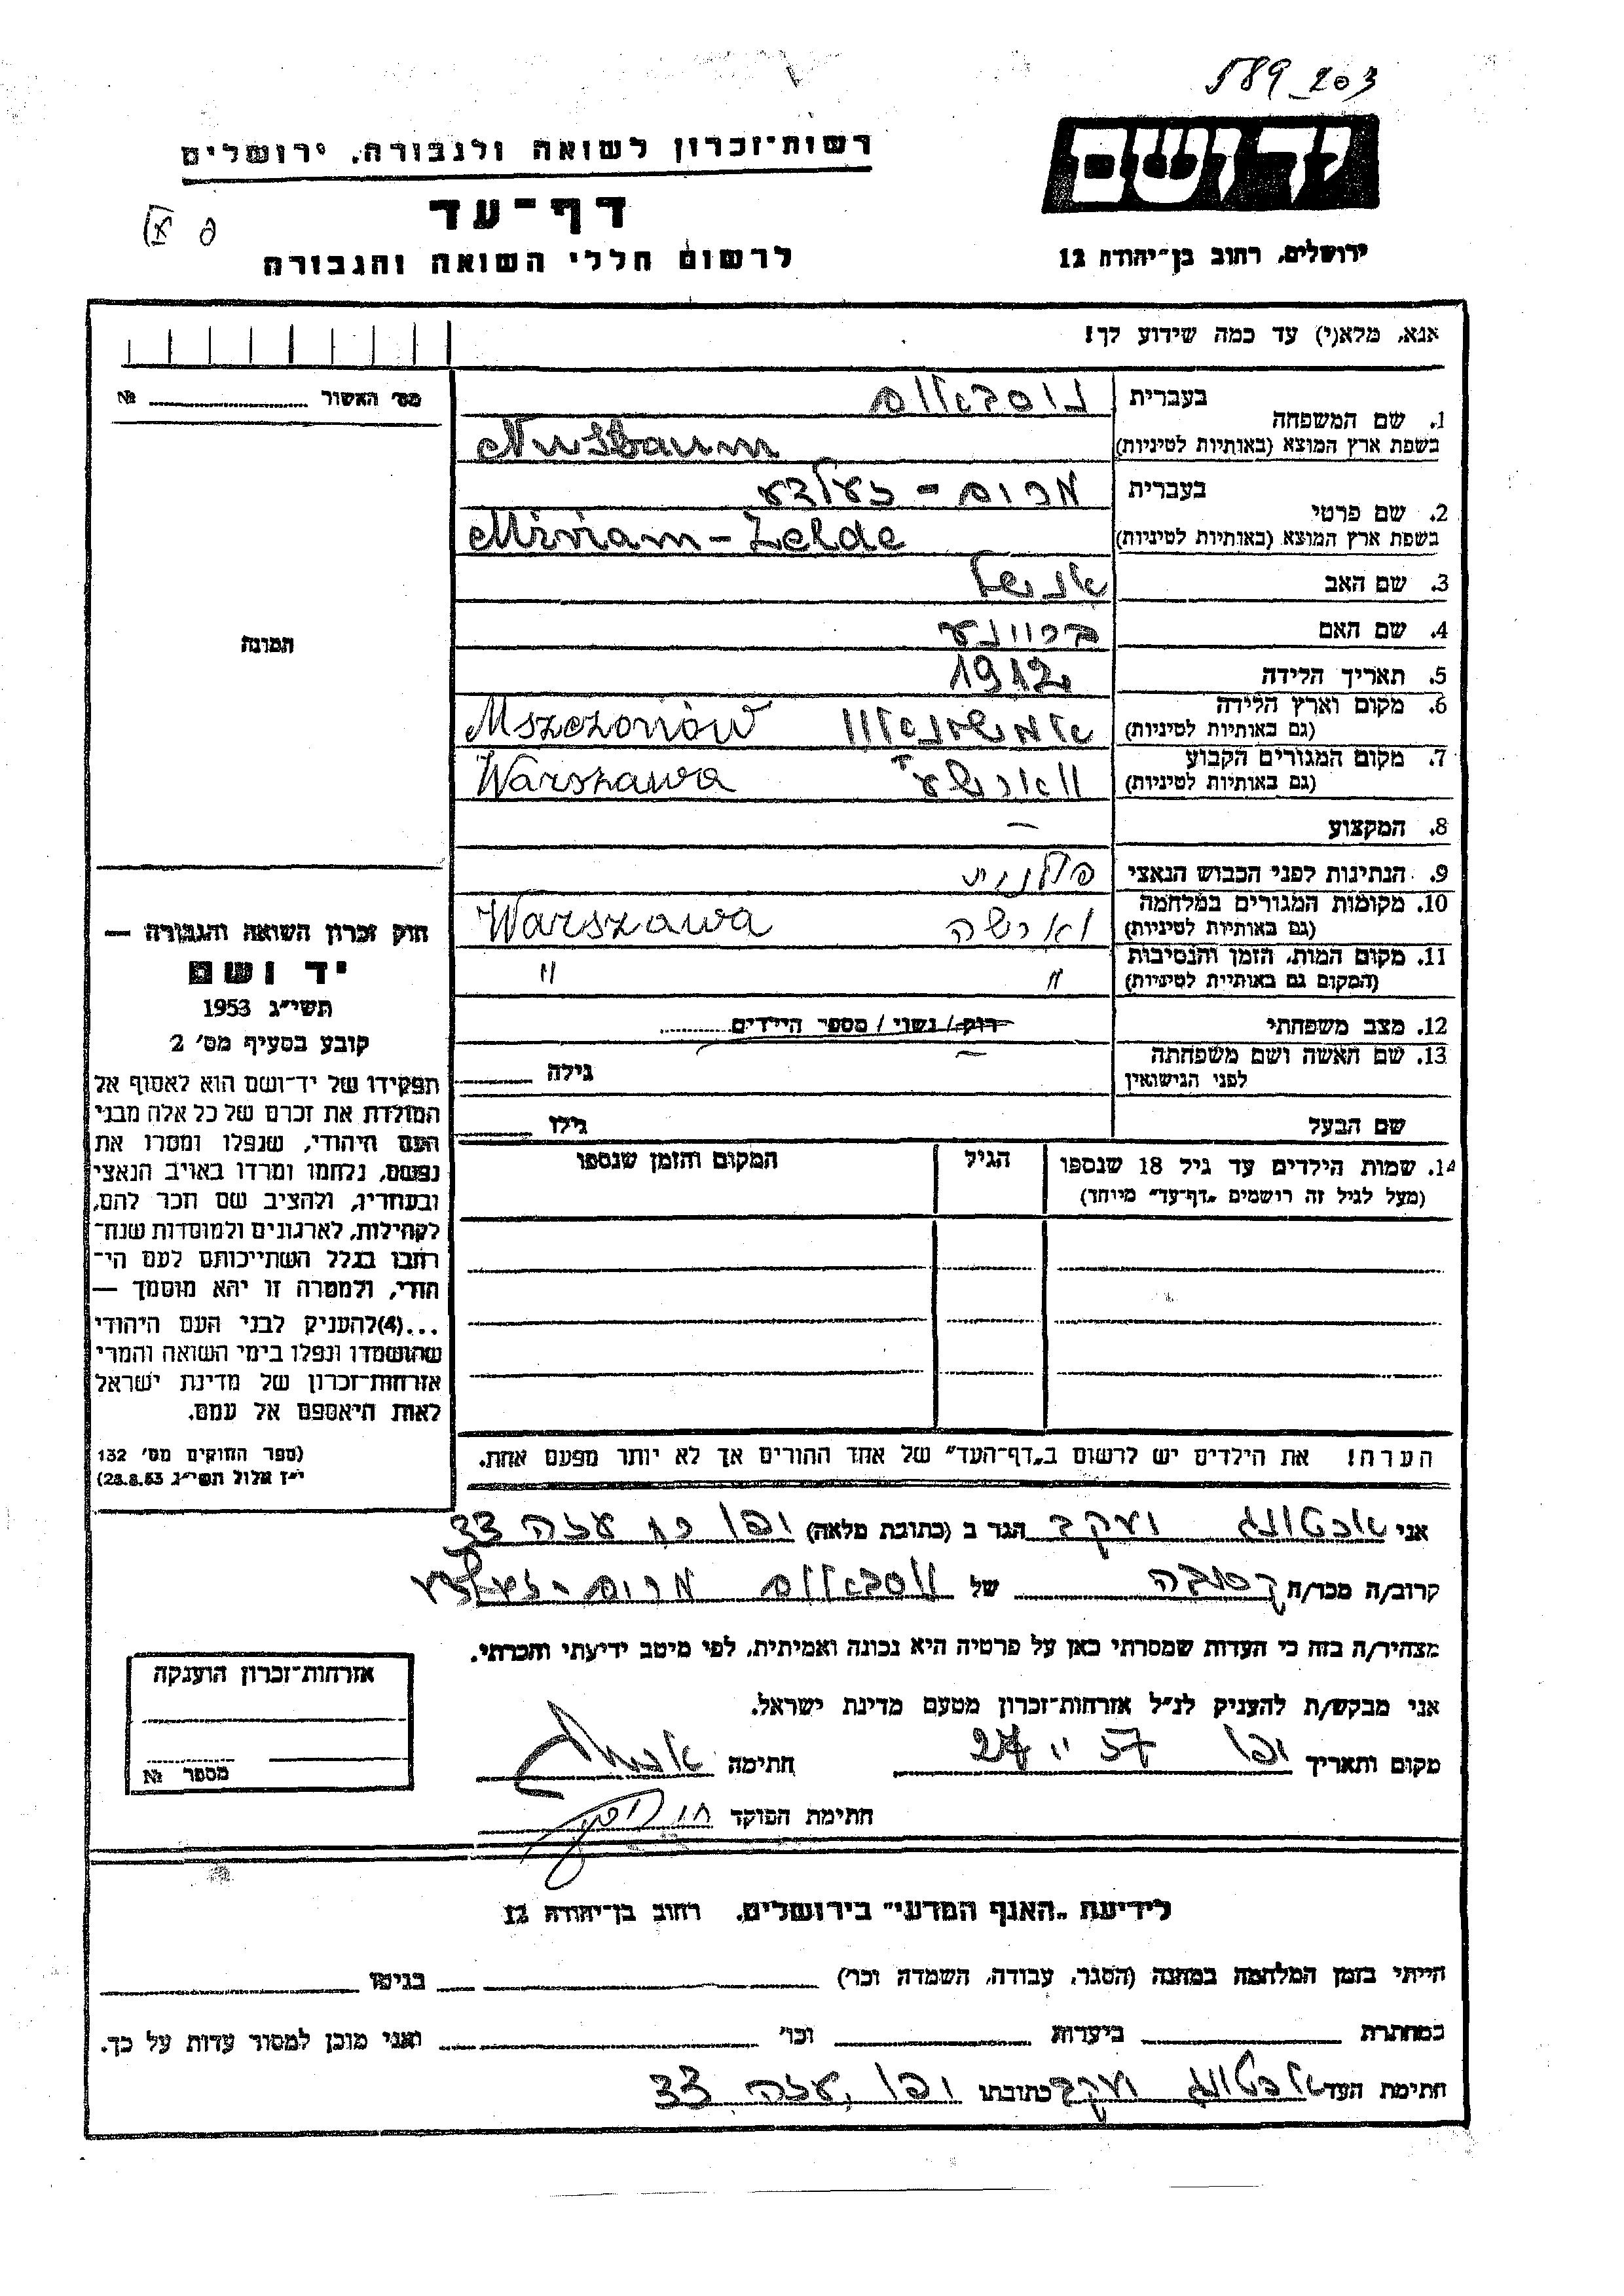 589_203
יד ושם
רשות־זכרון לשואה ולגבורה, ירושלים
דף־עד
לרשום חללי השואה והגבורה
ירושלים, רחוב בן־יהודה 12
אנא, מלא(י) עד כמה שידוע לך!
מס׳ האשור № 
1. שם המשפחה
בעברית נוסבאום
בשפת ארץ המוצא (באותיות לטיניות) Nusbaum
2. שם פרטי
בעברית מרים - זעלדע
בשפת ארץ המוצא (באותיות לטיניות) Miriam - Zelde
3. שם האב אנשל
4. שם האם
5. תאריך הלידה 1912
6. מקום וארץ הלידה
(גם באותיות לטיניות) Mszczonów
7. מקום המגורים הקבוע
(גם באותיות לטיניות) ווארשע Warszawa
8. המקצוע —
9. הנתינות לפני הכבוש הנאצי פולנית
10. מקומות המגורים במלחמה
(גם באותיות לטיניות) וארשה Warszawa
11. מקום המות, הזמן והנסיבות
(המקום גם באותיות לטיניות) " "
12. מצב משפחתי רוק/נשוי/מספר הילדים
13. שם האשה ושם משפחתה
לפני הנישואין — גילה
שם הבעל גילו
14. שמות הילדים עד גיל 18 שנספו הגיל המקום והזמן שנספו
(מעל לגיל זה רושמים „דף־עד״ מיוחד)
תמונה
חוק זכרון השואה והגבורה —
יד ושם
תשי״ג 1953
קובע בסעיף מס׳ 2
תפקידו של יד־ושם הוא לאסוף אל
המולדת את זכרם של כל אלה מבני
העם היהודי, שנפלו ומסרו את
נפשם, נלחמו ומרדו באויב הנאצי
ובעוזריו, ולהציב שם וזכר להם,
לקהילות, לארגונים ולמוסדות שנח־
רבו בגלל השתייכותם לעם הי־
הודי, ולמטרה זו יהא מוסמך —
...(4) להעניק לבני העם היהודי
שהושמדו ונפלו בימי השואה והמרי
אזרחות־זכרון של מדינת ישראל
לאות היאספם אל עמם.
(ספר החוקים מס׳ 132
י״ז אלול תשי״ג 28.8.53)
הערה! את הילדים יש לרשום ב„דף־העד״ של אחד ההורים אך לא יותר מפעם אחת.
אני יעקב הגר ב (כתובת מלאה) יפו עזה 33
קרוב/ה מכר/ה קרובה של נוסבאום מרים - זעלדע
מצהיר/ה בזה כי העדות שמסרתי כאן על פרטיה היא נכונה ואמיתית, לפי מיטב ידיעתי והכרתי.
אני מבקש/ת להעניק לנ״ל אזרחות־זכרון מטעם מדינת ישראל.
מקום ותאריך יפו 57 חתימה
חתימת הפוקד
אזרחות־זכרון הוענקה
מספר №
לידיעת „האגף המדעי״ בירושלים, רחוב בן־יהודה 12
הייתי בזמן המלחמה במחנה (הסגר, עבודה, השמדה וכו׳) בגיטו
במחתרת ביערות וכו׳ ואני מוכן למסור עדות על כך.
חתימת העד יעקב כתובתו יפו, עזה 33